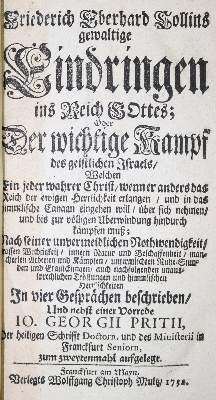 Friederich Eberhard Collins
gewaltige
Eindringen
ins Reich GOttes;
Oder
Der wichtige Kampf
des geistlichen Israels/
Welchen
Ein jeder wahrer Christ, wenner anders das
Reich der ewigen Herrlichkeit erlangen / und in das
himmlische Canaan eingehen will / über sich nehmen/
und bis zur völligen Uberwindung hindurch
kämpfen muß;
Nach seiner unvermeidlichen Nothwendigkeit/
Wichtigkeit / innern Natur und Beschaffenheit / man-
cherley und Kämpfen /
und Erquickungen / auch nachfolgenden unaus-
sprechlichen Tröstungen und himmlischen
Herrlichkeiten
In vier Gesprächen beschrieben/
Und nebst einer Vorrede
IO. GEORGII PRITII,
Der heiligen Schrifft Doctorn, und des Ministerii in
Franckfurt Seniorn,
zum zweytenmahl aufgelegt.
Franckfurt am Mayn,
Verlegts Wolffgang Christoph Multz / 1752.